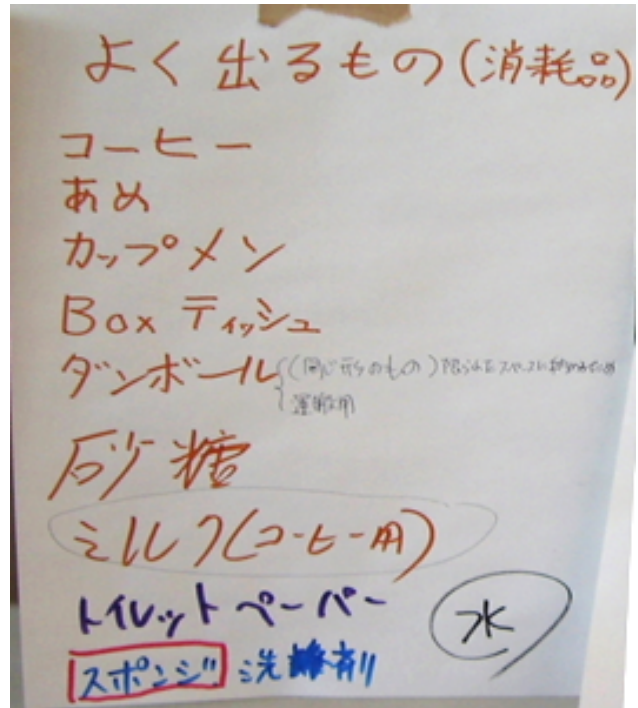 よく出るもの(消耗品)
コーヒー
あめ
カップメン
Box ティッシュ
ダンボール (同じ形のもの)限られたスペースに
運搬用
砂糖
ミルク(コーヒー用)
トイレットペーパー
水
スポンジ 洗剤